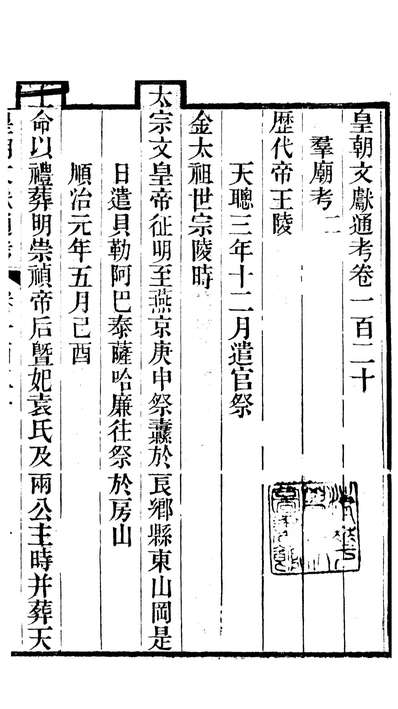 皇朝文獻通考卷一百二十
羣廟考二
歷代帝王陵
天聰三年十二月遣官祭
金太祖世宗陵時
太宗文皇帝征明至燕京庚申祭纛於良鄉縣東山岡是
日遣貝勒阿巴泰薩哈廉往祭於房山
順治元年五月己酉
命以禮葬明崇禎帝后曁妃袁氏及兩公主時并葬天